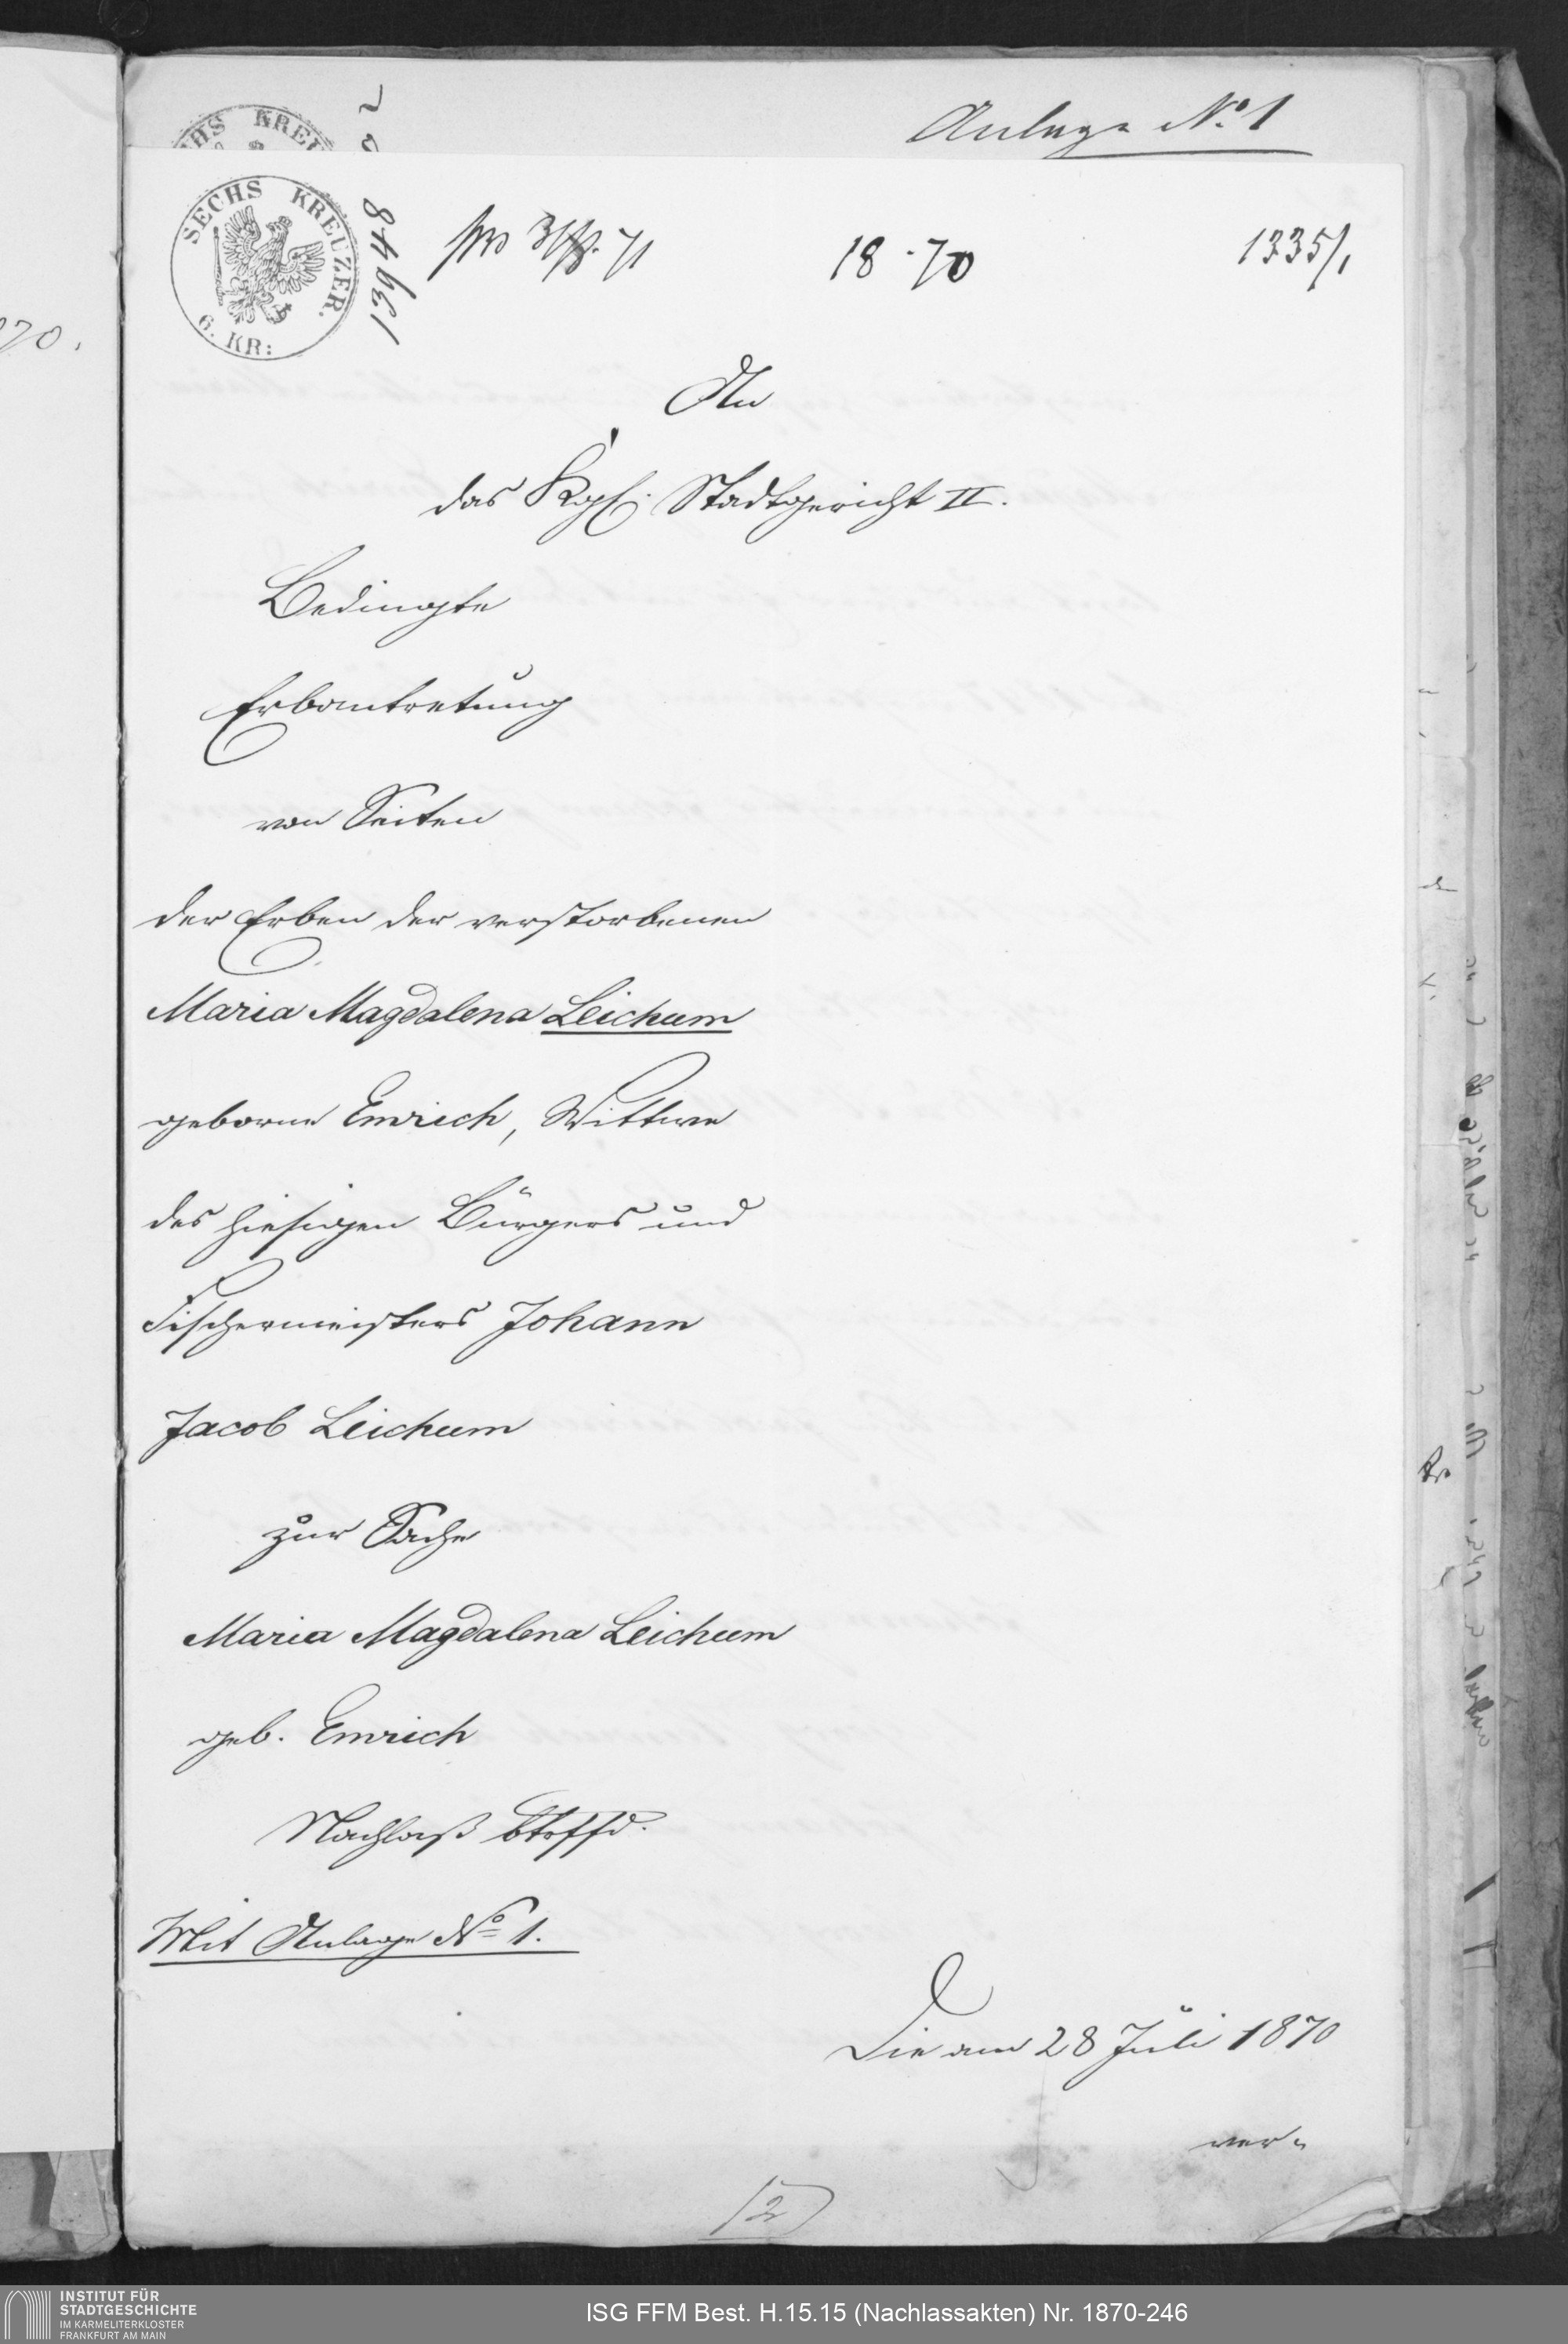 Anlage No. 1
SECHS KREUZER.
6. KR:
13948
18 70
1335/1
An
das Kgl. Stadtgericht II.
Bedingte
Erbantretung
von Seiten
der Erben der verstorbenen
Maria Magdalena Leichum
geborne Emrich, Wittwe
des hiesigen Bürgers und
Fischermeisters Johann
Jacob Leichum
zur Sache
Maria Magdalena Leichum
geb. Emrich
Nachlaß btrffd.
Mit Anlage No. 1.
Die am 28 Juli 1870
ver-
INSTITUT FÜR
STADTGESCHICHTE
IM KARMELITERKLOSTER
FRANKFURT AM MAIN
ISG FFM Best. H.15.15 (Nachlassakten) Nr. 1870-246